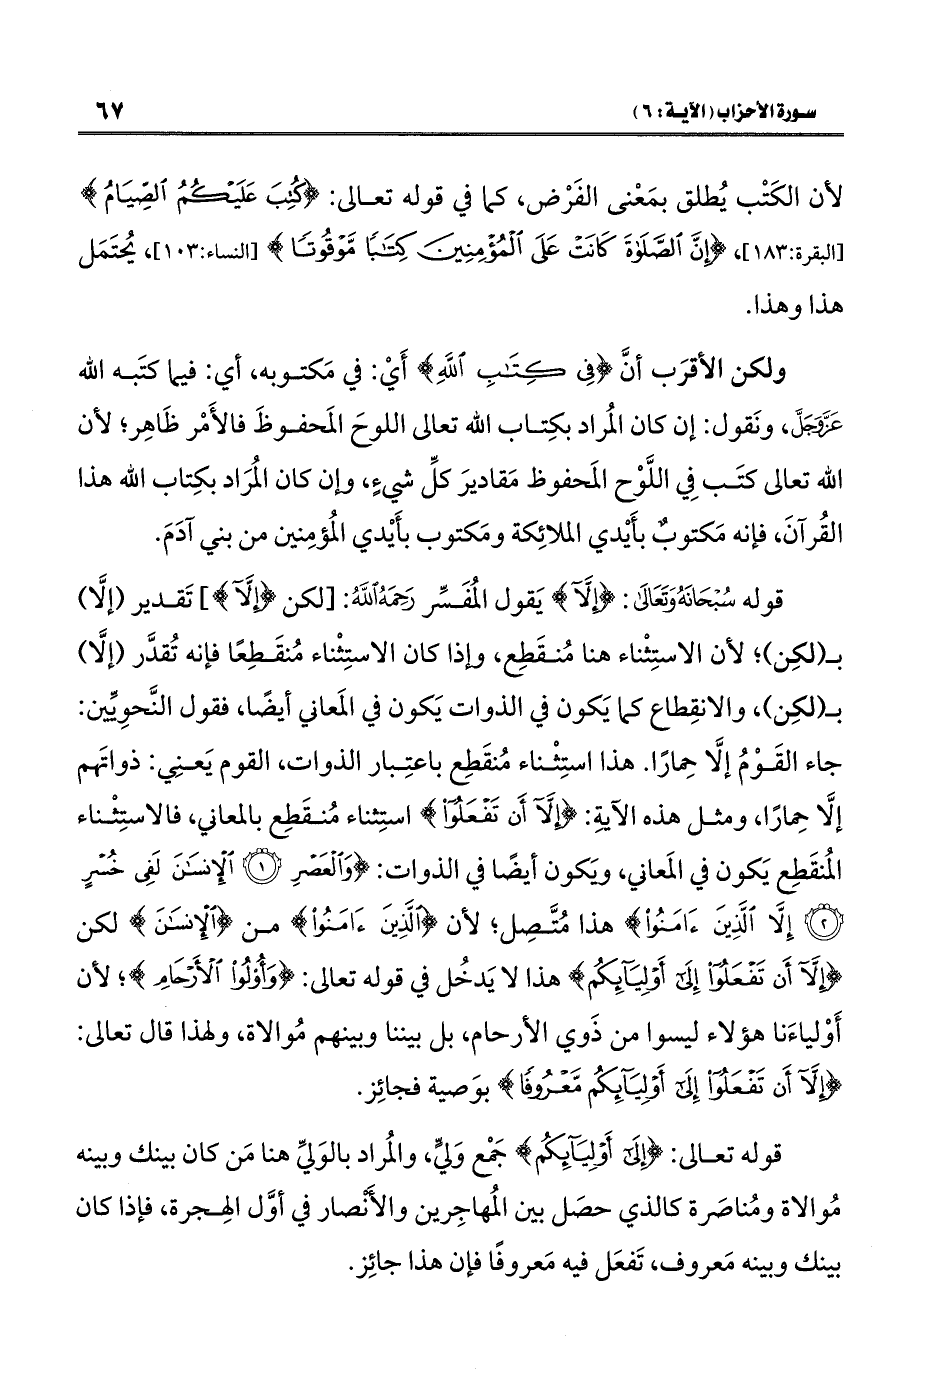 سورة الأحزاب (الآية: ٦) ٦٧
لأن الكَتْب يُطلق بمَعْنى الفَرْض، كما في قوله تعالى: ﴿كُتِبَ عَلَيْكُمُ ٱلصِّيَامُ﴾
[البقرة:١٨٣]، ﴿إِنَّ ٱلصَّلَوٰةَ كَانَتْ عَلَى ٱلْمُؤْمِنِينَ كِتَٰبًا مَّوْقُوتًا﴾ [النساء:١٠٣]، يُحتَمَل
هذا وهذا.
ولكن الأقرَب أنَّ ﴿فِي كِتَٰبِ ٱللَّهِ﴾ أَيْ: في مَكتوبه، أي: فيما كتَبه الله
عَزَّوَجَلَّ، ونَقول: إن كان المُراد بكِتاب الله تعالى اللوحَ المَحفوظَ فالأَمْر ظَاهِر؛ لأن
الله تعالى كتَب فِي اللَّوْح المَحفوظ مَقاديرَ كلِّ شيءٍ، وإن كان المُرَاد بكِتاب الله هذا
القُرآنَ، فإنه مَكتوبٌ بأَيْدي الملائِكة ومَكتوب بأَيْدي المُؤمِنين من بني آدَمَ.
قوله سُبْحَانَهُ وَتَعَالَى: ﴿إِلَّآ﴾ يَقول المُفَسِّر رَحِمَهُ اللَّهُ: [لكن ﴿إِلَّآ﴾] تَقدير (إلَّا)
بـ(لكِن)؛ لأن الاستِثْناء هنا مُنقَطِع، وإذا كان الاستِثْناء مُنقَطِعًا فإنه تُقدَّر (إلَّا)
بـ(لكِن)، والانقِطاع كما يَكون في الذوات يَكون في المَعاني أيضًا، فقول النَّحويِّين:
جاء القَوْمُ إلَّا حِمارًا. هذا استِثْناء مُنقَطِع باعتِبار الذوات، القوم يَعنِي: ذواتَهم
إلَّا حِمارًا، ومثل هذه الآيةِ: ﴿إِلَّآ أَن تَفْعَلُوٓا۟﴾ استِثناء مُنقَطِع بالمعاني، فالاستِثْناء
المُنقَطِع يَكون في المَعاني، ويَكون أيضًا في الذوات: ﴿وَٱلْعَصْرِ ۝١ ٱلْإِنسَٰنَ لَفِى خُسْرٍ
۝٢ إِلَّا ٱلَّذِينَ ءَامَنُوا۟﴾ هذا مُتَّصِل؛ لأن ﴿ٱلَّذِينَ ءَامَنُوا۟﴾ من ﴿ٱلْإِنسَٰنَ﴾ لكن
﴿إِلَّآ أَن تَفْعَلُوٓا۟ إِلَىٰٓ أَوْلِيَآئِكُم﴾ هذا لا يَدخُل في قوله تعالى: ﴿وَأُو۟لُوا۟ ٱلْأَرْحَامِ﴾؛ لأن
أَوْلياءَنا هؤلاء ليسوا من ذَوي الأرحام، بل بيننا وبينهم مُوالاة، ولهذا قال تعالى:
﴿إِلَّآ أَن تَفْعَلُوٓا۟ إِلَىٰٓ أَوْلِيَآئِكُم مَّعْرُوفًا﴾ بوَصية فجائِز.
قوله تعالى: ﴿إِلَىٰٓ أَوْلِيَآئِكُم﴾ جَمْع وَليٍّ، والمُراد بالوَليِّ هنا مَن كان بينك وبينه
مُوالاة ومُناصَرة كالذي حصَل بين المُهاجِرين والأَنْصار في أوَّل الهِجرة، فإذا كان
بينك وبينه مَعروف، تَفعَل فيه مَعروفًا فإن هذا جائِز.